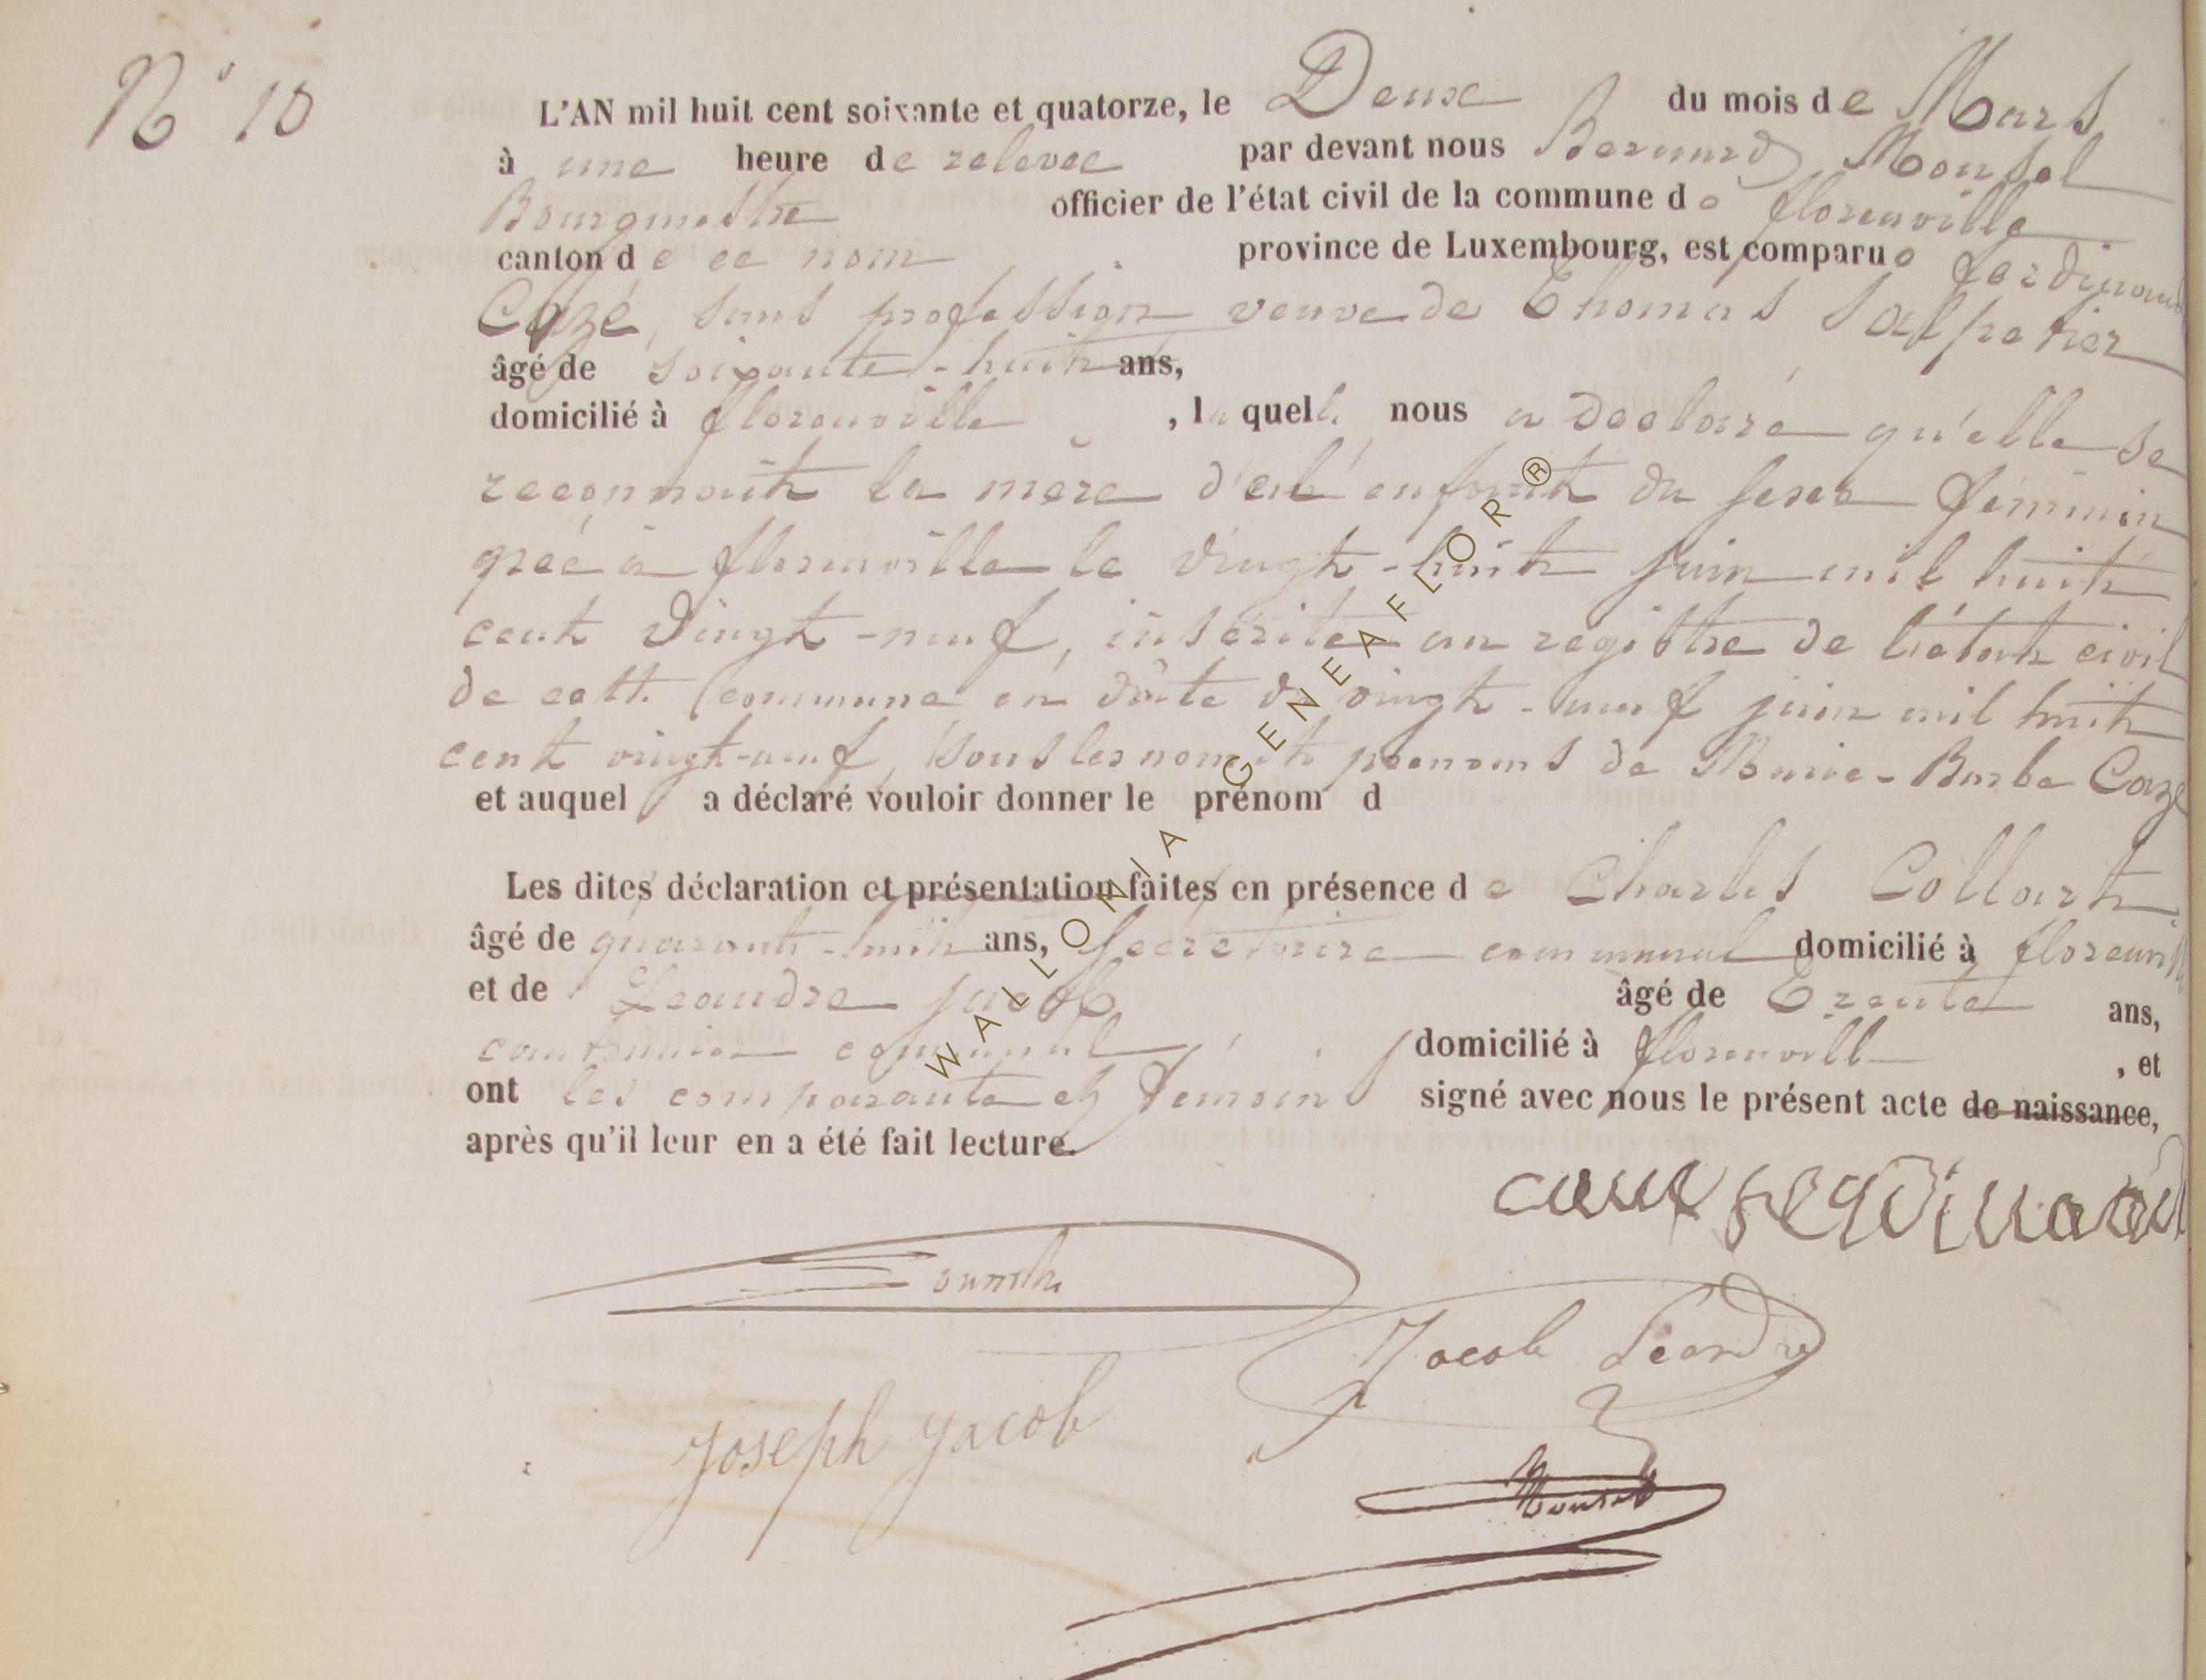 N° 10
L'AN mil huit cent soixante et quatorze, le Deux du mois de Mars
à une heure de relevee par devant nous Bernard Monsel
Bourgmestre officier de l'état civil de la commune de florenville
canton de ce nom province de Luxembourg, est comparue ferdinande
Cazé, sans profession veuve de Thomas Salpetier
âgé de soixante-huit ans,
domicilié à florenville, laquelle nous a declare qu'elle se
reconnait la mère d'enfant du sexe féminin
née à florenville le vingt-huit juin mil huit
cent vingt-neuf, inscrite au registre de l'état civil
de cette commune en date du vingt-neuf juin mil huit
cent vingt-neuf, sous les nom et prenoms de Marie-Barbe Cazé
et auquel a déclaré vouloir donner le prénom d
Les dites déclaration et présentation faites en présence de Charles Collart
âgé de quarante-huit ans, secretaire communal domicilié à florenville
et de Leandre jacob âgé de Trente ans,
cantonnier communal domicilié à florenville, et
ont les comparante et témoins signé avec nous le présent acte de naissance,
après qu'il leur en a été fait lecture.
ferdinand
Jacob Léandre
Joseph Jacob
Monsel
WALLONIA GENEAFLOR ®